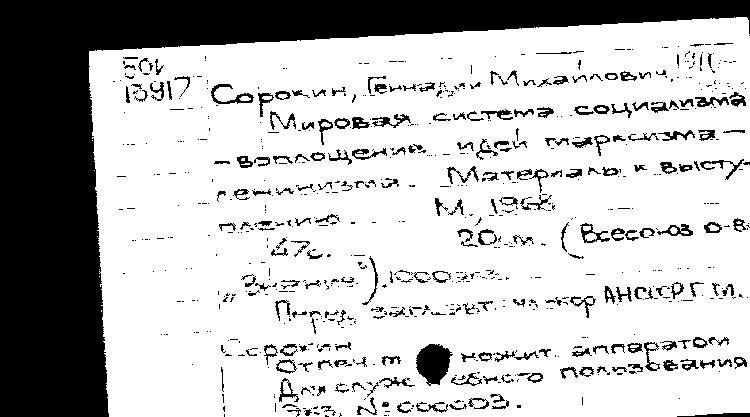 501
13917 Сорокин, Геннадий Михайлович, 191
Мировая система социализма
- воплощение идей марксизма -
ленинизма. Материалы к высту-
плению. М., 1968
47с. 20 см. (Всесоюз о-во
„Знание"). 1000 экз.
Перед загл. авт. чл.-кор АН СССР Г. М.
Сорокин
Отпеч. множит. аппаратом
Для служебного пользования
Экз. №: 000003.